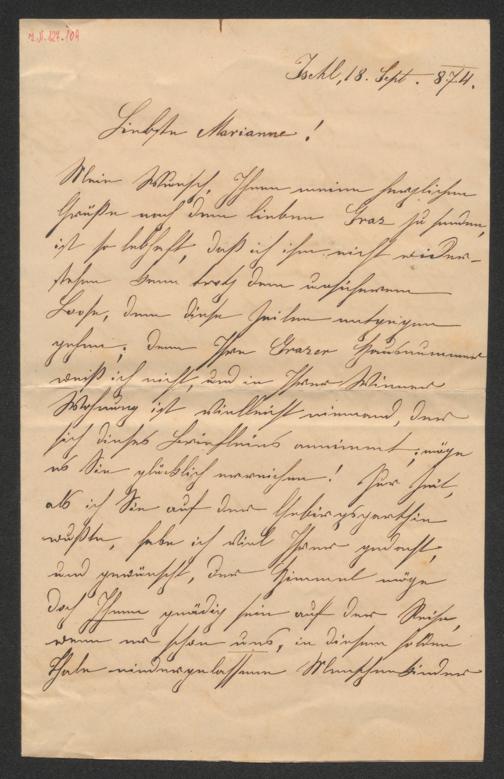 I.N.127.109
Ischl, 18. Sept. 874.
Liebste Marianne!
Mein Wunsch, Ihnen meine herzlichen
Grüße nach dem lieben Graz zu senden,
ist so lebhaft, daß ich ihm nicht wider-
stehen kann trotz dem unsicheren
Loose, dem diese Zeilen entgegen
gehen; denn Ihre Grazer Hausnummer
weiß ich nicht, und in Ihrer Wiener
Wohnung ist vielleicht niemand, der
sich dieses Briefleins annimmt; möge
es Sie glücklich erreichen! Zur Zeit,
als ich Sie auf der Gebirgsparthie
wußte, habe ich viel Ihrer gedacht,
und gewünscht, der Himmel möge
doch Ihnen gnädig sein auf der Reise,
wenn er schon uns, in diesem holden
Thale niedergelassene Menschenkinder